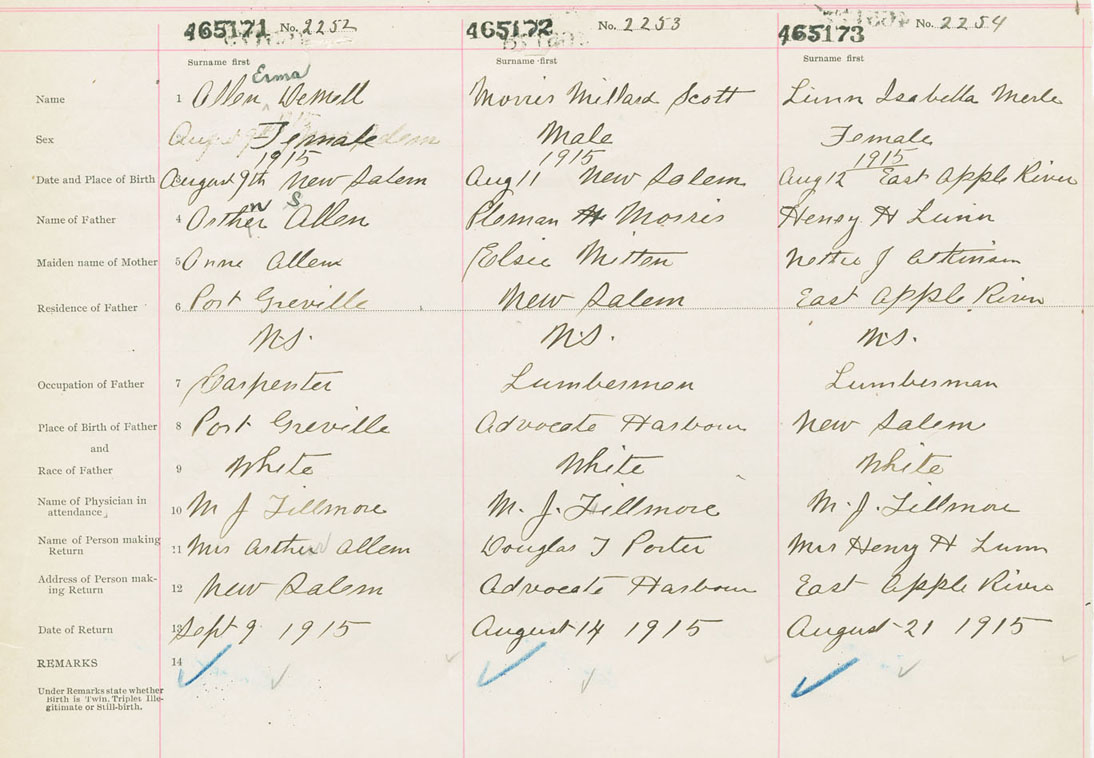 465171 No. 2252 465172 No. 2253 465173 No. 2254
Surname first Surname first Surname first
Erma
Name 1 Allen, Wemell Morris Millard Scott Lunn Isabella Merle
Sex Female Male Female
1915 1915 1915
Date and Place of Birth August 9th New Salem Aug 11 New Salem Aug 12 East Apple River
Name of Father 4 Arthur S Allen Pleman H Morris Henry H Lunn
Maiden name of Mother 5 Anne Allen Elsie Mitten Nettie J Atkinson
Residence of Father 6 Port Greville New Salem East Apple River
N.S. N.S. N.S.
Occupation of Father 7 Carpenter Lumberman Lumberman
Place of Birth of Father 8 Port Greville Advocate Harbour New Salem
and
Race of Father 9 White White White
Name of Physician in
attendance, 10 M J Fillmore M. J. Fillmore M. J. Fillmore
Name of Person making
Return 11 Mrs Arthur Allen Douglas T Porter Mrs Henry H Lunn
Address of Person mak-
ing Return 12 New Salem Advocate Harbour East Apple River
Date of Return 13 Sept 9 1915 August 14 1915 August 21 1915
REMARKS 14
Under Remarks state whether
Birth is Twin, Triplet Ille-
gitimate or Still-birth.